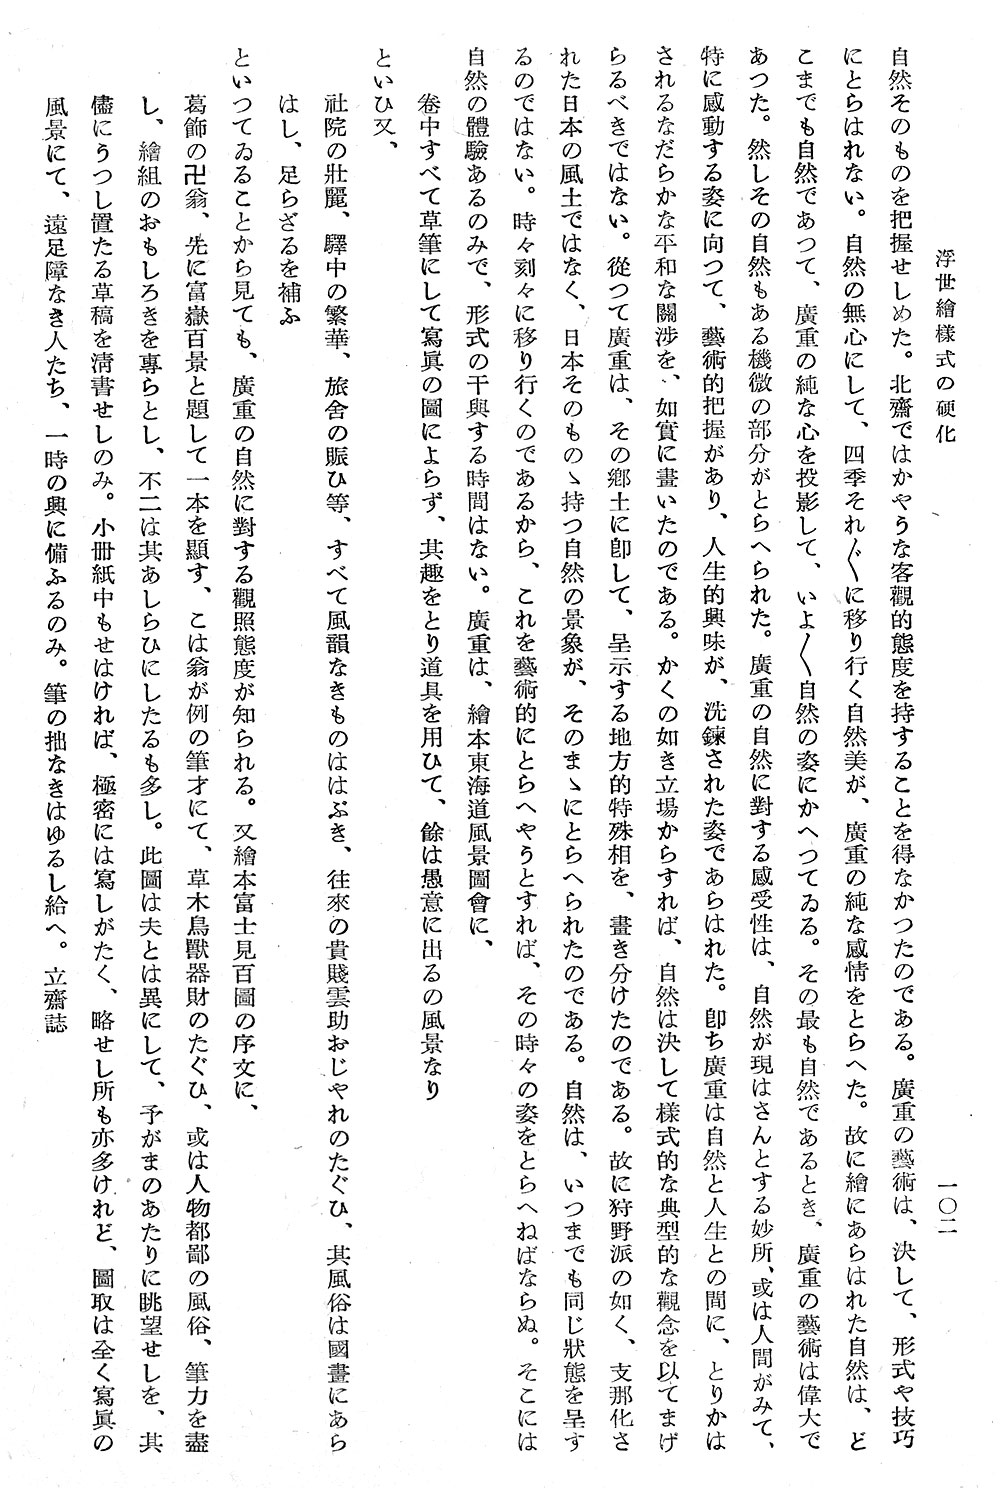 浮世繪樣式の硬化
一〇二
自然そのものを把握せしめた。北齋ではかやうな客觀的態度を持することを得なかつたのである。廣重の藝術は、決して、形式や技巧
にとらはれない。自然の無心にして、四季それ〴〵に移り行く自然美が、廣重の純な感情をとらへた。故に繪にあらはれた自然は、ど
こまでも自然であつて、廣重の純な心を投影して、いよ〳〵自然の姿にかへつてゐる。その最も自然であるとき、廣重の藝術は偉大で
あつた。然しその自然もある機微の部分がとらへられた。廣重の自然に對する感受性は、自然が現はさんとする妙所、或は人間がみて、
特に感動する姿に向つて、藝術的把握があり、人生的興味が、洗鍊された姿であらはれた。卽ち廣重は自然と人生との間に、とりかは
されるなだらかな平和な關涉を、如實に畫いたのである。かくの如き立場からすれば、自然は決して樣式的な典型的な觀念を以てまげ
らるべきではない。從つて廣重は、その鄕土に卽して、呈示する地方的特殊相を、畫き分けたのである。故に狩野派の如く、支那化さ
れた日本の風土ではなく、日本そのものゝ持つ自然の景象が、そのまゝにとらへられたのである。自然は、いつまでも同じ狀態を呈す
るのではない。時々刻々に移り行くのであるから、これを藝術的にとらへやうとすれば、その時々の姿をとらへねばならぬ。そこには
自然の體驗あるのみで、形式の干與する時間はない。廣重は、繪本東海道風景圖會に、
卷中すべて草筆にして寫眞の圖によらず、其趣をとり道具を用ひて、餘は愚意に出るの風景なり
といひ又、
社院の壯麗、驛中の繁華、旅舍の賑ひ等、すべて風韻なきものははぶき、往來の貴賤雲助おじやれのたぐひ、其風俗は國畫にあら
はし、足らざるを補ふ
といつてゐることから見ても、廣重の自然に對する觀照態度が知られる。又繪本富士見百圖の序文に、
葛飾の卍翁、先に富嶽百景と題して一本を顯す、こは翁が例の筆才にて、草木鳥獸器財のたぐひ、或は人物都鄙の風俗、筆力を盡
し、繪組のおもしろきを專らとし、不二は其あしらひにしたるも多し。此圖は夫とは異にして、予がまのあたりに眺望せしを、其
儘にうつし置たる草稿を淸書せしのみ。小册紙中もせはければ、極密には寫しがたく、略せし所も亦多けれど、圖取は全く寫眞の
風景にて、遠足障なき人たち、一時の興に備ふるのみ。筆の拙なきはゆるし給へ。立齋誌